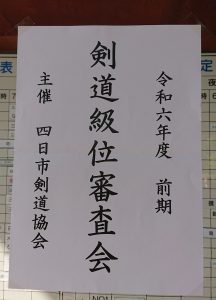 令和六年度　前期
剣道級位審査会
主催　四日市剣道協会
表
定